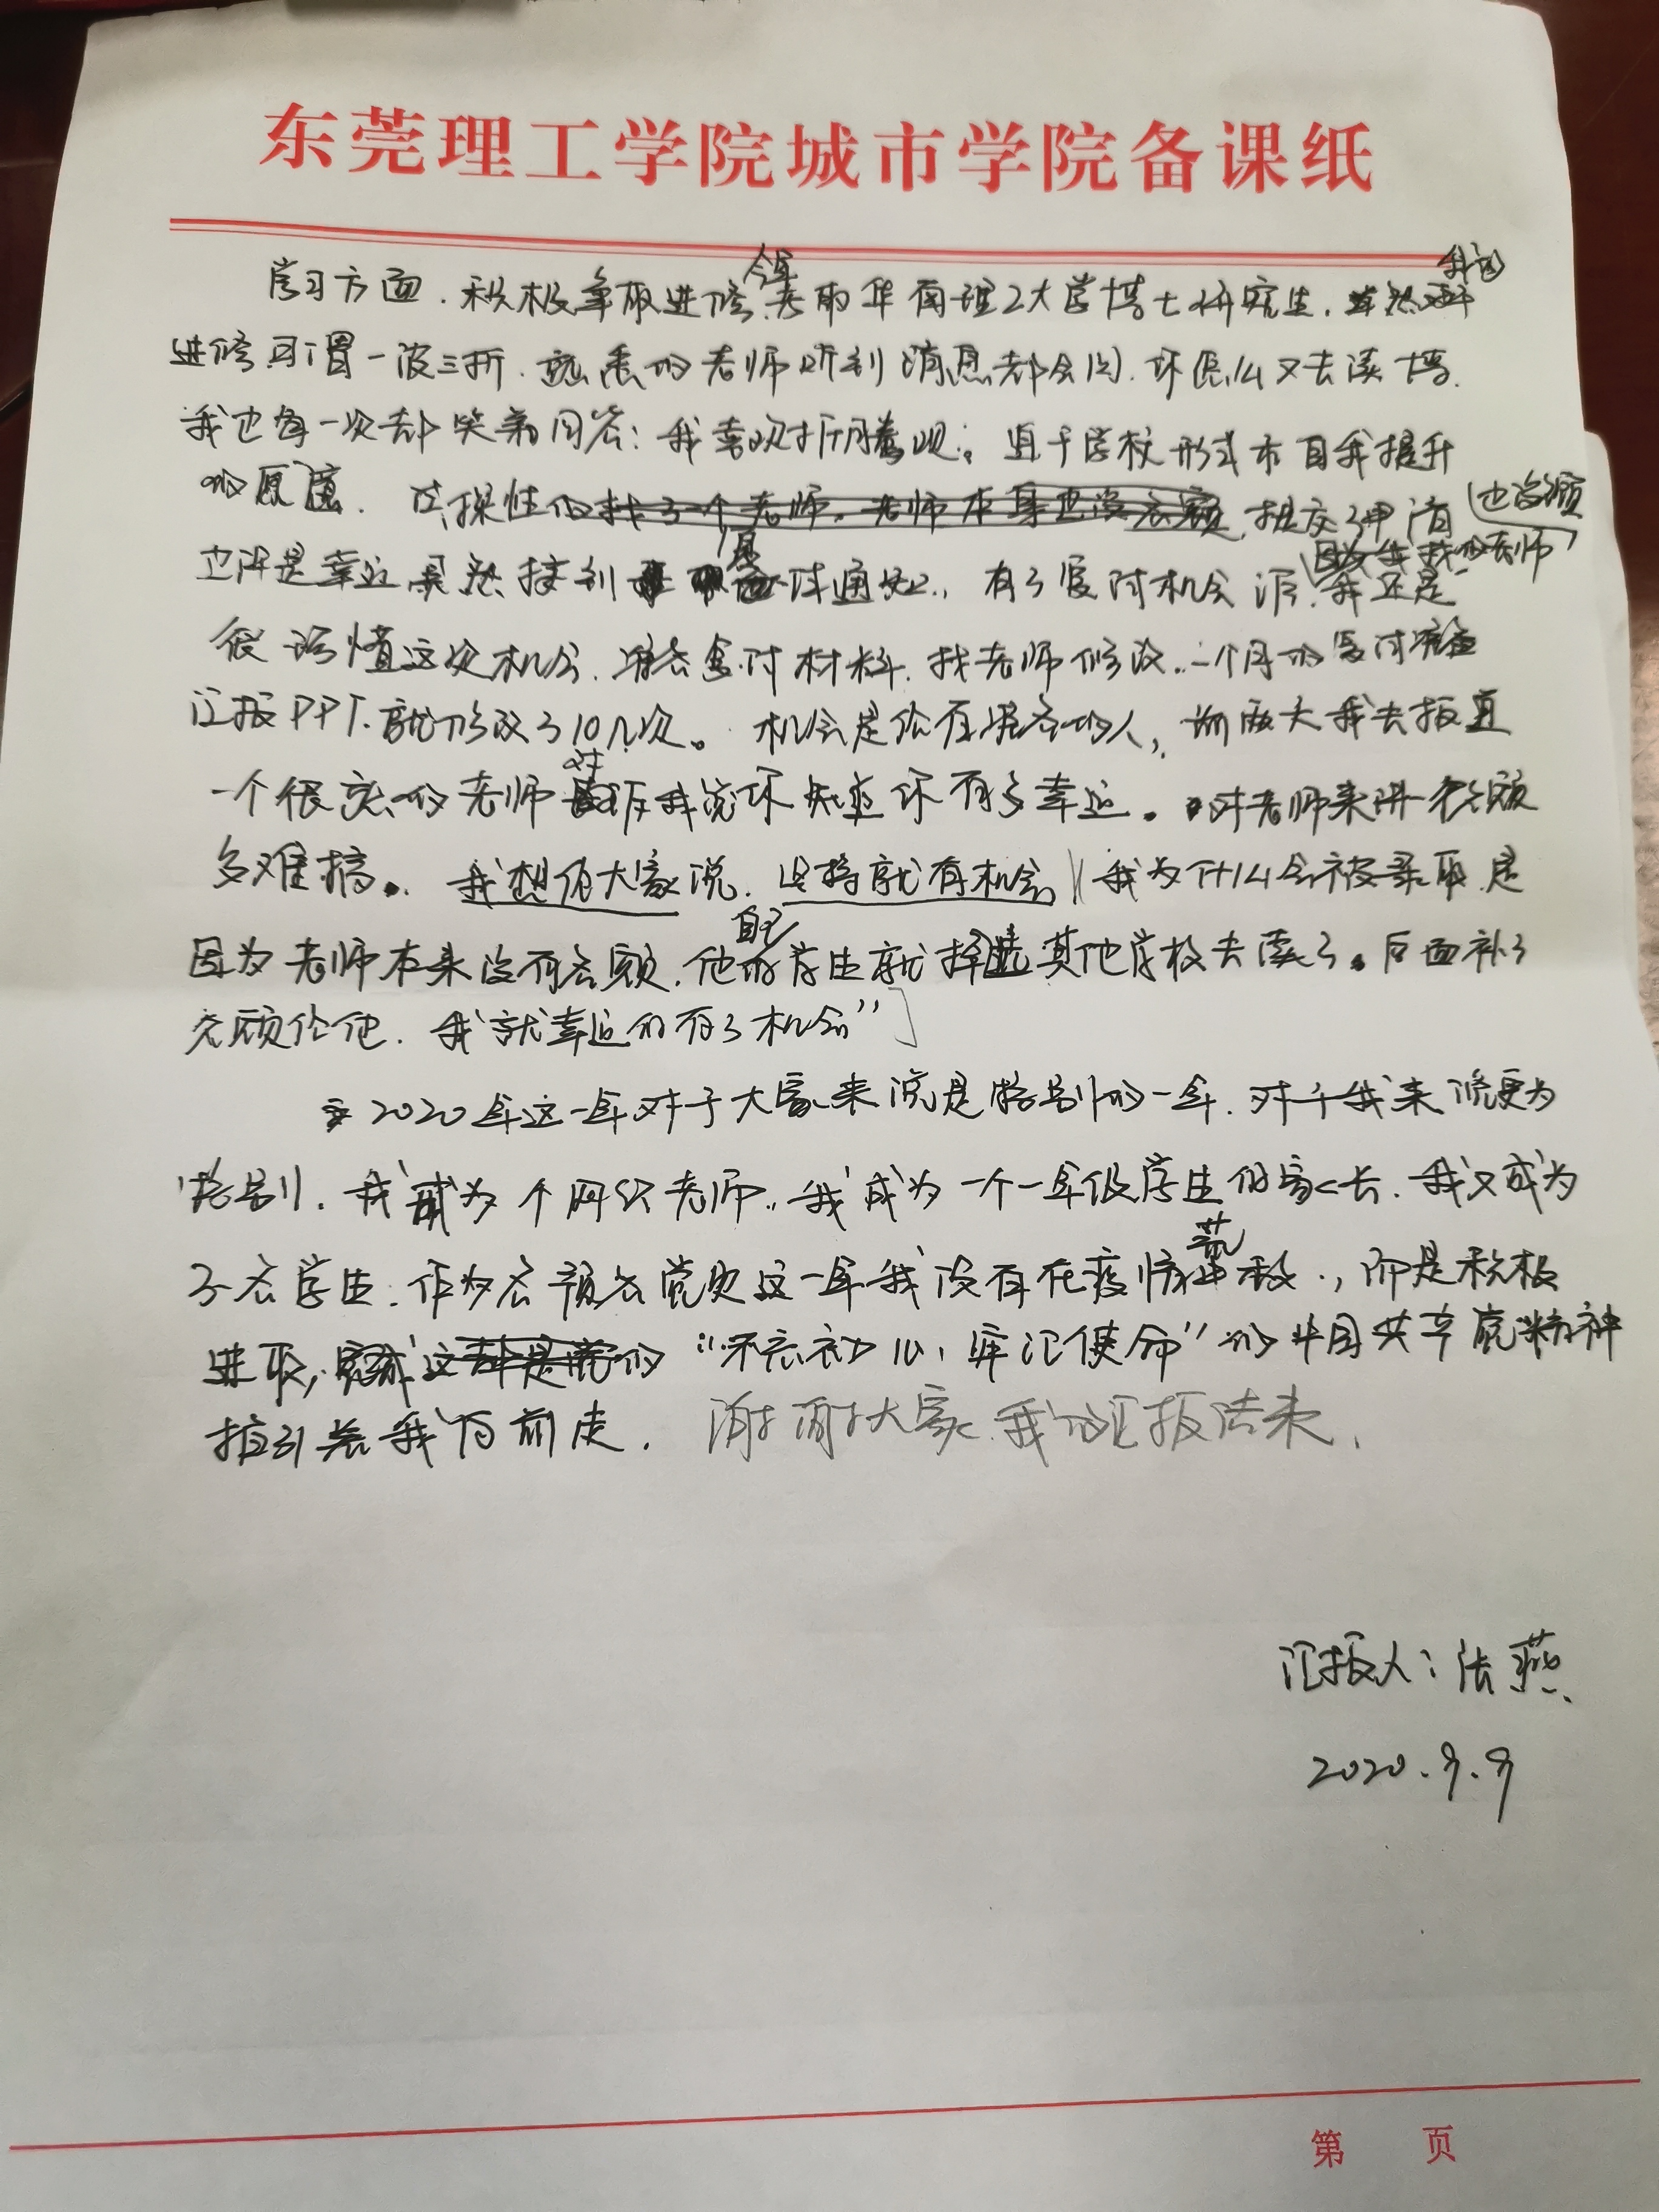 东莞理工学院城市学院备课纸
学习方面，积极争取进修，今年考取华南理工大学博士研究生，我的
进修可谓一波三折，熟悉的老师听到消息都会问，你怎么又去读博，
我也每一次都笑着回答：我喜欢折腾呗。迫于学校形式和自我提升
的愿望，试探性的找了一个老师，老师本身也没名额，提交了申请
也许是幸运 居然接到复试通知，有了复试机会后，我还是
很珍惜这次机会，准备复试材料，找老师修改，一个月的复试准备
汇报PPT，就修改了10几次。机会是给有准备的人，前两天我去报道
一个很熟的老师对我说你知道你有多幸运。对老师来讲一个名额
多难搞。我想给大家说，坚持就有机会，（我为什么会被录取，是
因为老师本来没有名额，他自己的学生就择其他学校去读了。后面补了
名额给他，我就幸运的有了机会”］
2020年这一年对于大家来说是特别的一年，对于我来说更为
特别，我成为一个网络老师，我成为一个一年级学生的家长，我又成为
了一名学生，作为一名预备党员这一年我没有在疫情荒废，而是积极
进取，这都是党的“不忘初心，牢记使命”的中国共产党精神
指引着我向前走。谢谢大家，我的汇报结束，
汇报人：张燕
2020.9.9
第 页